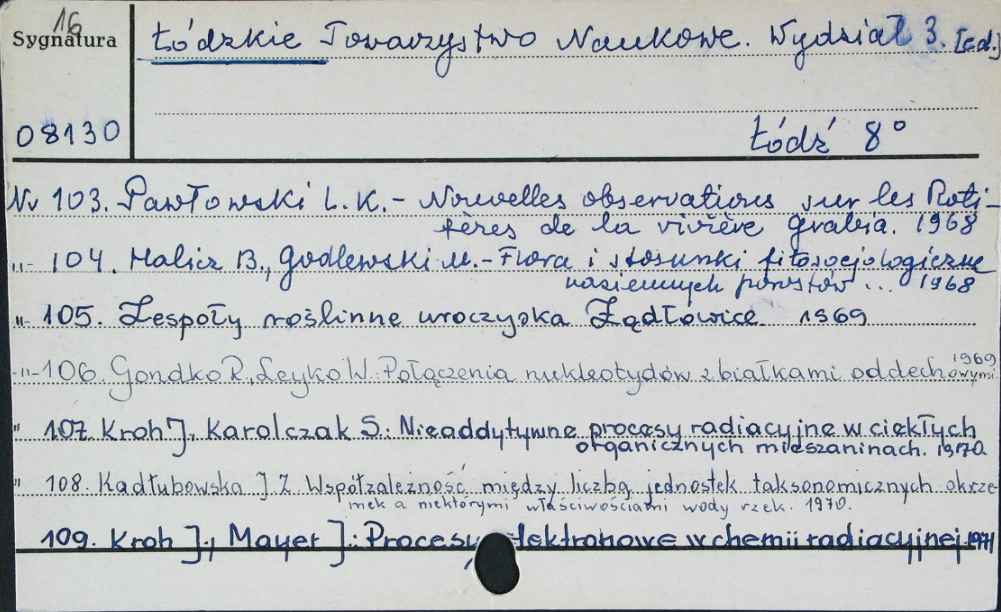 16
Sygnatura
Łódzkie Towarzystwo Naukowe. Wydział 3. [ed.]
08130
Łódź 8°
Nr 103. Pawłowski L. K. - Nouvelles observations sur les Roti-
fères de la rivière Grabia. 1968
-"- 104. Halicz B., Godlewski M. - Flora i stosunki fitosocjologiczne
nasiennych porostów ... 1968
" 105. Zespoły roślinne uroczyska Żądłowice 1969
-"- 106. Gondko R., Leyko W. Połączenia nukleotydów z białkami oddechowymi 1969
" 107. Kroh J., Karolczak S.: Nieaddytywne procesy radiacyjne w ciekłych
organicznych mieszaninach. 1970.
" 108. Kadłubowska J Z Współzależność między liczbą jednostek taksonomicznych okrze-
mek a niektórymi właściwościami wody rzek. 1970.
109. Kroh J., Mayer J.: Procesy elektronowe w chemii radiacyjnej. 1971